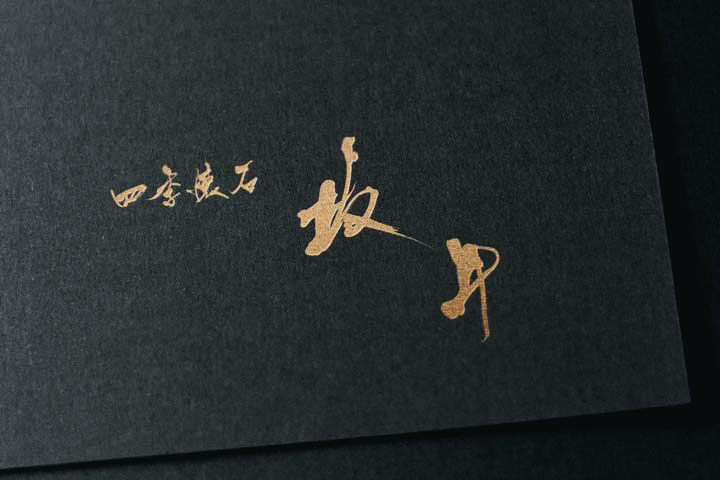 四季懐石 坂井